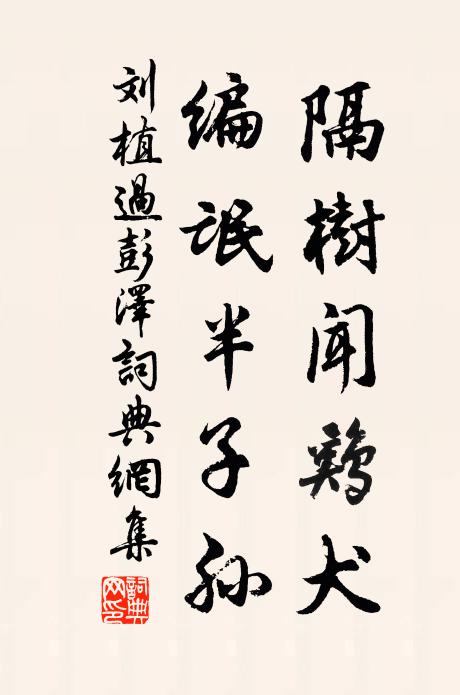 隔樹闻鷄犬
编氓半子孙
刘植過彭澤詞典網集
詞典网印